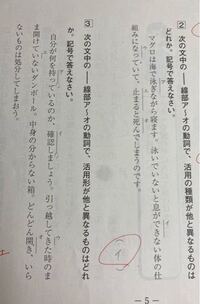 ② 次の文中の――線部ア～オの動詞で、活用の種類が他と異なるものは
どれか。記号で答えなさい。
マグロは海で泳ぎながら寝ます。泳いでいないと息ができない体の仕
組みになっていて、止まると死んでしまうのです。
（イ）
③ 次の文中の――線部ア～オの動詞で、活用形が他と異なるものはどれ
か。記号で答えなさい。
自分が何を持っているのか、確認しましょう。引っ越してきた時のま
ま開けていないダンボール。中身の分からない箱。どんどん開き、いら
ないものは処分してしまおう。
エ
― 5 ―